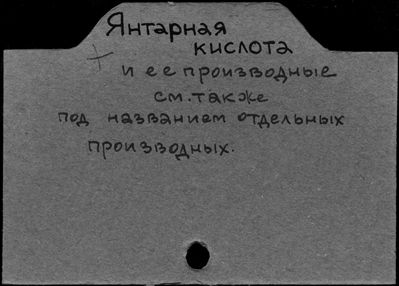 Янтарная
кислота
и ее производные
см. также
под названием отдельных
производных.